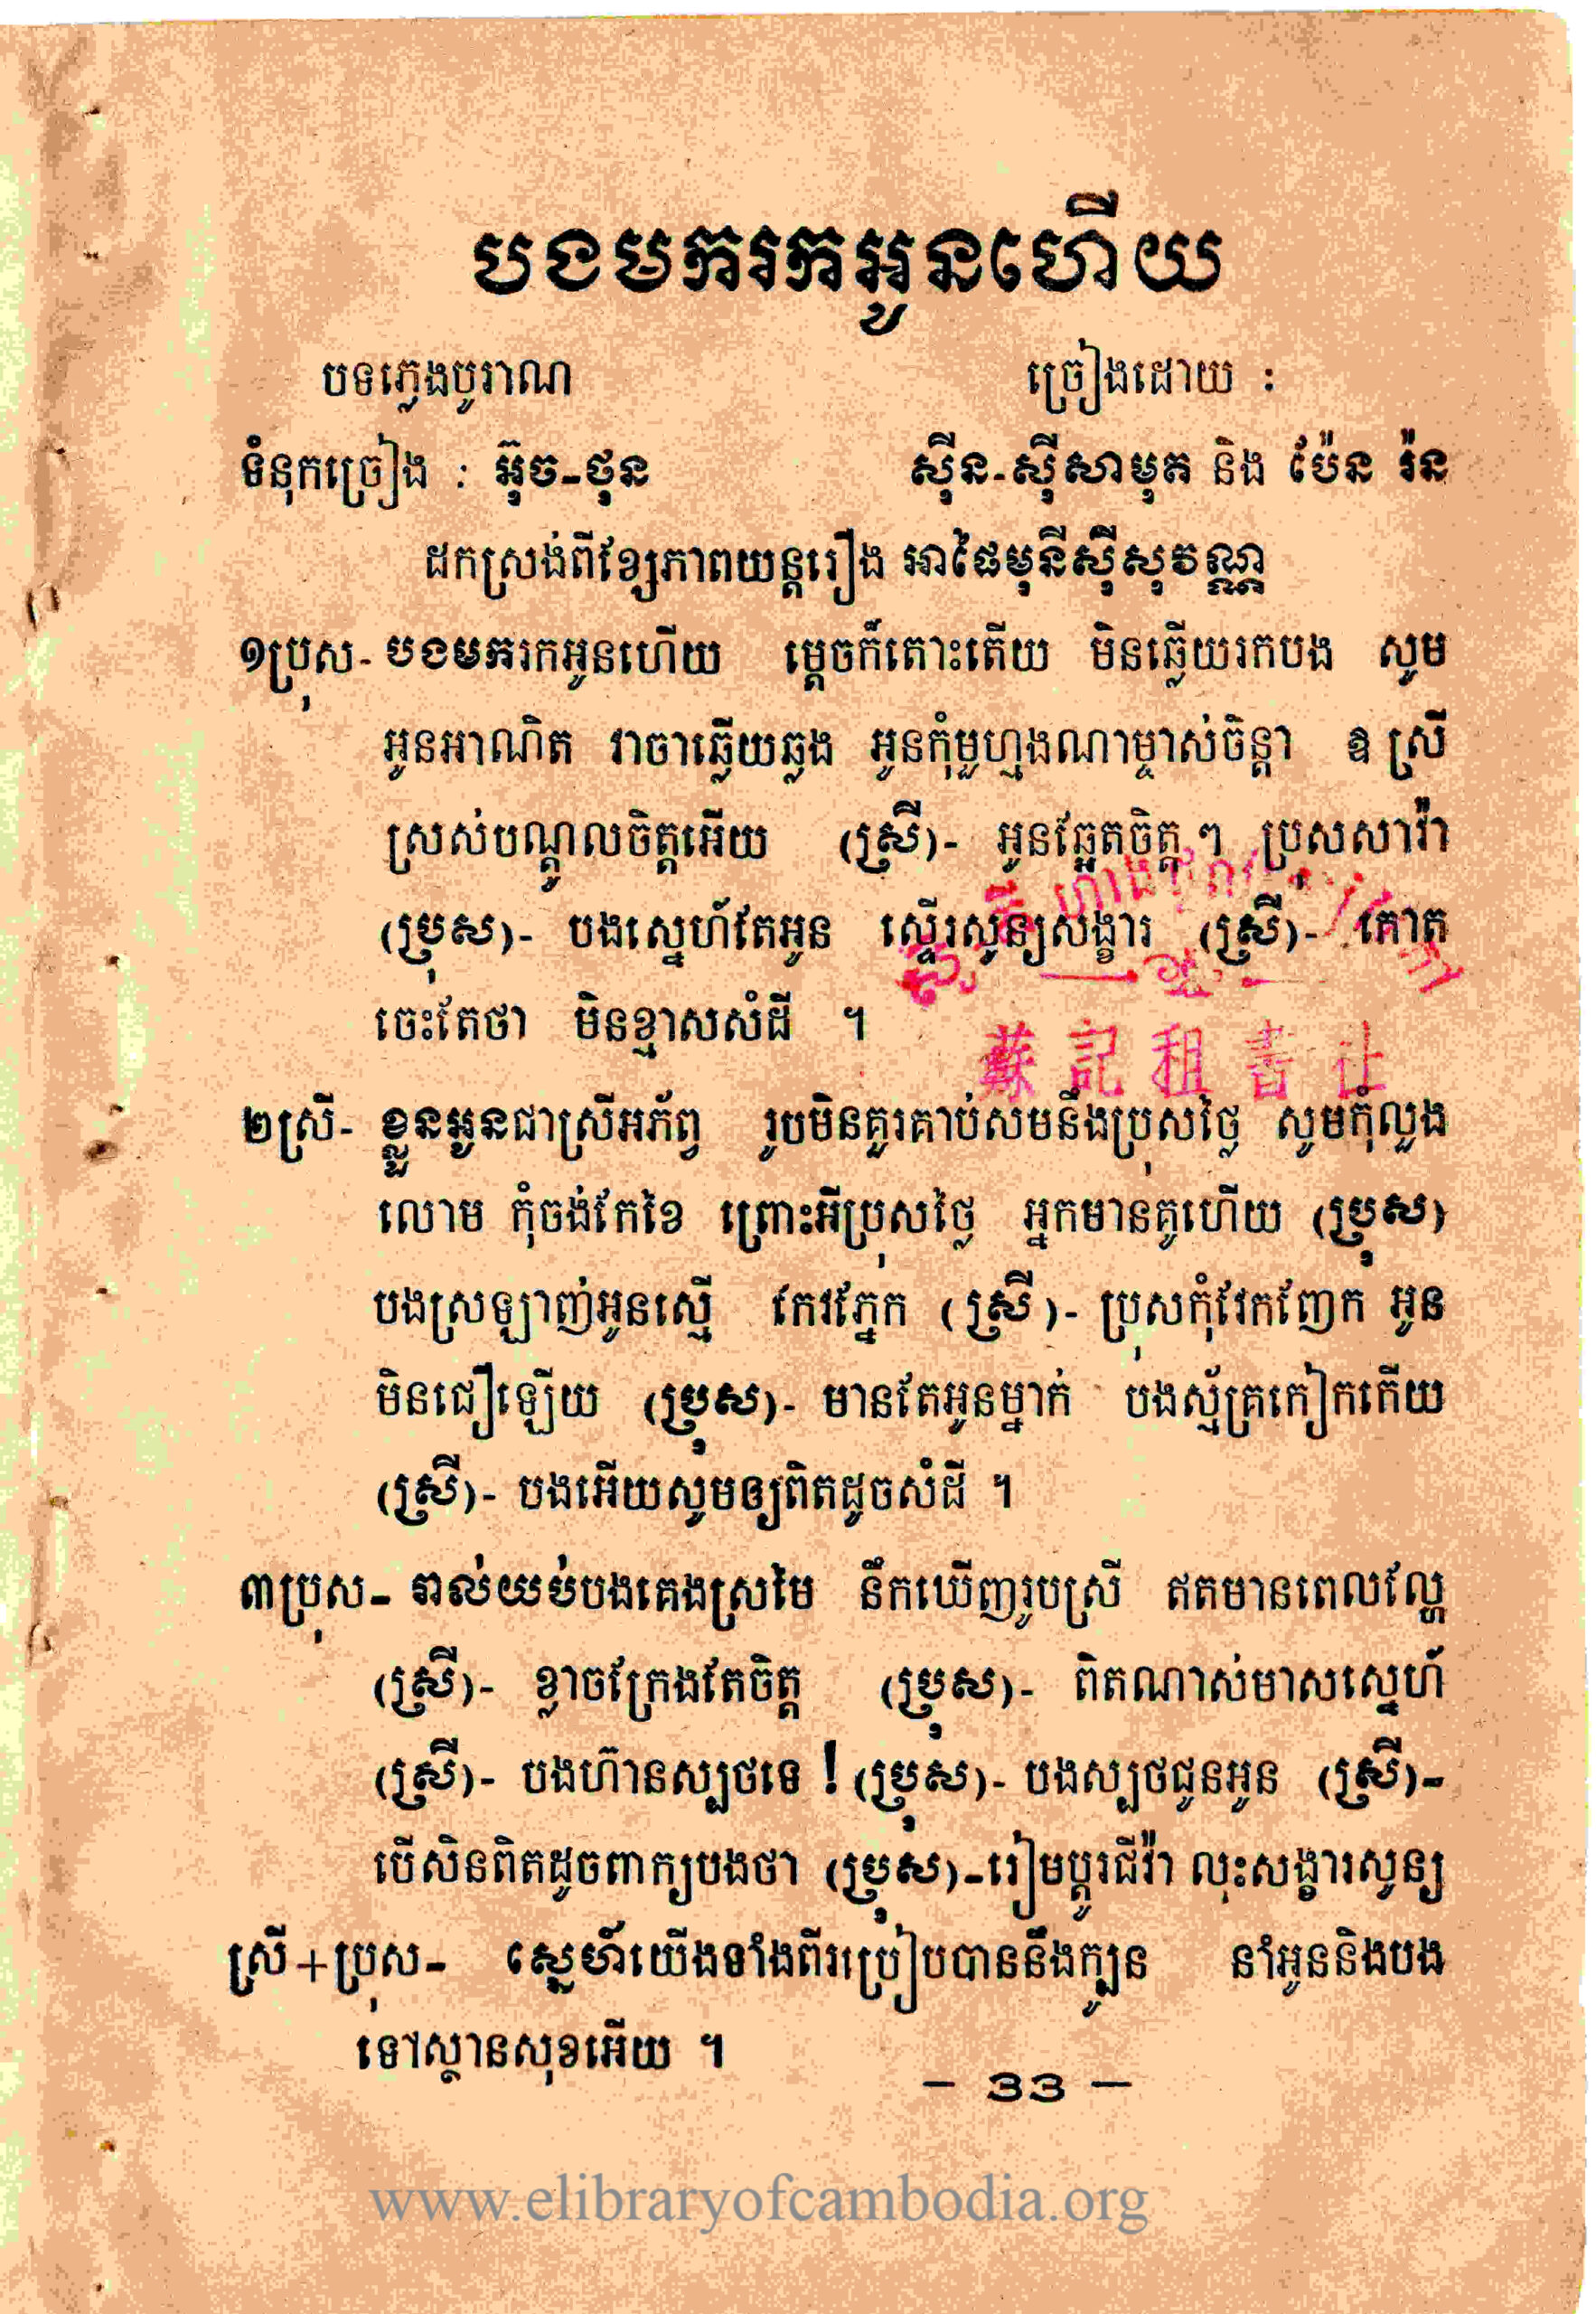 បងមករកអូនហើយ
បទភ្លេងបូរាណ ច្រៀងដោយ :
ទំនុកច្រៀង : អ៊ុច-ថុន ស៊ីន-ស៊ីសាមុត និង ប៉ែន រ៉ន
ដកស្រង់ពីខ្សែភាពយន្តរឿង អាដៃមុនីស៊ីសុវណ្ណ
១ប្រុស- បងមករកអូនហើយ ម្ដេចក៏តោះតើយ មិនឆ្លើយរកបង សូម
អូនអាណិត វាចាឆ្លើយឆ្លង អូនកុំមួហ្មងណាម្ចាស់ចិន្តា ឧ ស្រី
ស្រស់បណ្ដូលចិត្តអើយ (ស្រី)- អូនឆ្អែតចិត្តៗ ប្រុសសាវ៉ា
(ប្រុស)- បងស្នេហ៍តែអូន ស្ទើរសូន្យសង្ខារ (ស្រី)- គោត
ចេះតែថា មិនខ្មាសសំដី ។
蘇記租書社
២ស្រី- ខ្លួនអូនជាស្រីអភ័ព្វ រូបមិនគួរគាប់សមនឹងប្រុសថ្លៃ សូមកុំលួង
លោម កុំចង់កែខៃ ព្រោះអីប្រុសថ្លៃ អ្នកមានគូហើយ (ប្រុស)
បងស្រឡាញ់អូនស្មើ កែវភ្នែក (ស្រី)- ប្រុសកុំវែកញែក អូន
មិនជឿឡើយ (ប្រុស)- មានតែអូនម្នាក់ បងស្ម័គ្រកៀកកើយ
(ស្រី)- បងអើយសូមឲ្យពិតដូចសំដី ។
៣ប្រុស- រាល់យប់បងគេងស្រមៃ នឹកឃើញរូបស្រី ឥតមានពេលល្ហែ
(ស្រី)- ខ្លាចក្រែងតែចិត្ត (ប្រុស)- ពិតណាស់មាសស្នេហ៍
(ស្រី)- បងហ៊ានស្បថទេ ! (ប្រុស)- បងស្បថជូនអូន (ស្រី)-
បើសិនពិតដូចពាក្យបងថា (ប្រុស)-រៀមប្ដូរជីវ៉ា លុះសង្ខារសូន្យ
ស្រី+ប្រុស- ស្នេហ៍យើងទាំងពីរប្រៀបបាននឹងក្បូន នាំអូននិងបង
ទៅស្ថានសុខអើយ ។
- 33 -
www.elibraryofcambodia.org